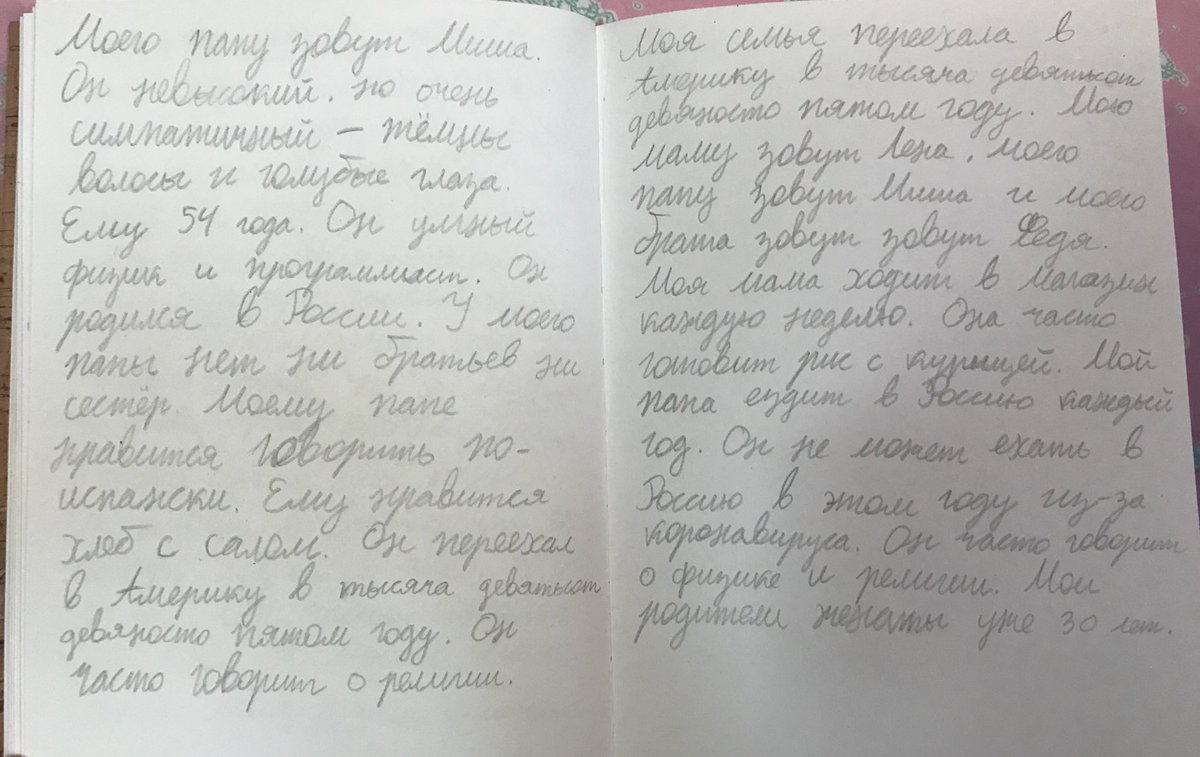 Моего папу зовут Миша.
Он невысокий, но очень
симпатичный – тёмны
волосы и голубые глаза.
Ему 54 года. Он умный
физик и программист. Он
родился в России. У моего
папы нет ни братьев ни
сестёр. Моему папе
нравится говорить по-
испански. Ему нравится
хлеб с салом. Он переехал
в Америку в тысяча девятьсот
девяносто пятом году. Он
часто говорит о религии.
Моя семья переехала в
Америку в тысяча девятьсот
девяносто пятом году. Мою
маму зовут Лена, моего
папу зовут Миша и моего
брата зовут зовут Федя.
Моя мама ходит в магазин
каждую неделю. Она часто
готовит рис с курицей. Мой
папа ездит в Россию каждый
год. Он не может ехать в
Россию в этом году из-за
коронавируса. Он часто говорит
о физике и религии. Мои
родители женаты уже 30 лет.